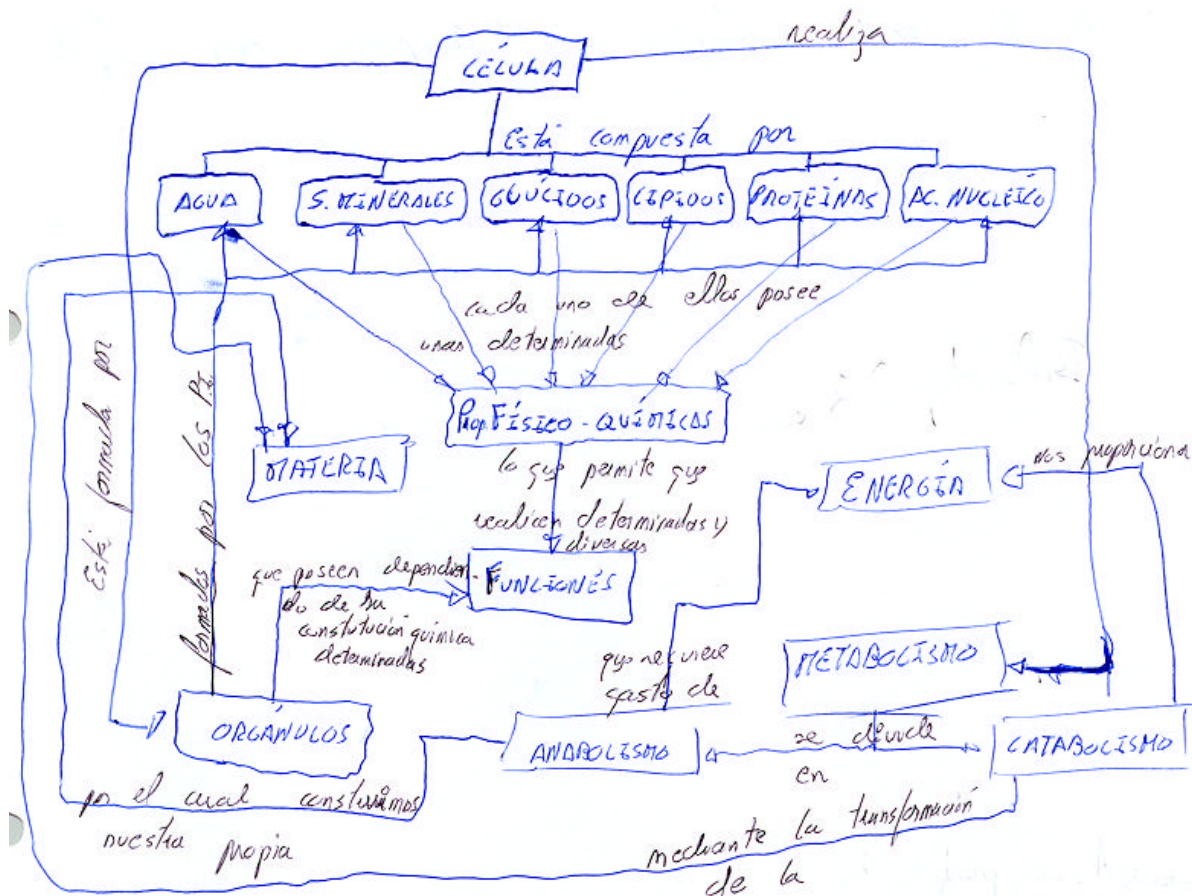 realiza
CÉLULA
Está compuesta por
AGUA
S. MINERALES
GLÚCIDOS
LÍPIDOS
PROTEÍNAS
AC. NUCLEÍCO
cada uno de ellos posee
unas determinadas
Prop. FÍSICO - QUÍMICAS
MATERIA
lo que permite que
realicen determinadas y
diversas
FUNCIONÉS
ENERGÍA
nos proporciona
Está formada por
formados por los P.I.
que poseen dependien-
do de su
constitución química
determinadas
que requiere
gasto de
METABOLISMO
ORGÁNULOS
ANABOLISMO
se divide
en
CATABOLISMO
por el cual construimos
nuestra propia
mediante la transformación
de la